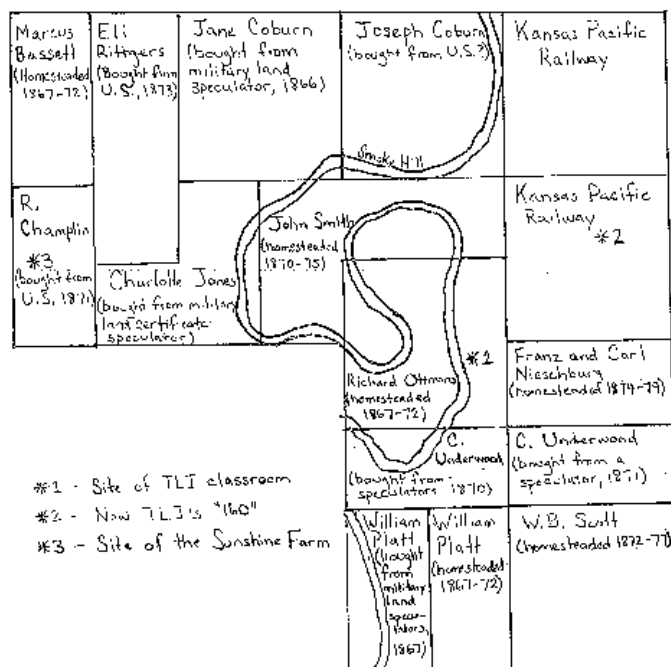 Marcus
Bassett
(Homesteaded
1867-72)
Eli
Rittgers
(Bought from
U.S., 1873)
Jane Coburn
(bought from
military land
speculator, 1866)
Joseph Coburn
(bought from U.S.?)
Kansas Pacific
Railway
Smoky Hill
R.
Champlin
*3
(bought from
U.S, 1871)
Charlotte Jones
(bought from military
land certificate
speculator)
John Smith
(homesteaded
1870-75)
Kansas Pacific
Railway
*2
*1
Richard Ottmans
(homesteaded
1867-72)
Franz and Carl
Nieschburg
(homesteaded 1874-79)
C.
Underwood
(bought from
speculators 1870)
C. Underwood
(bought from a
speculator, 1871)
William
Platt
(bought
from
military
land
specu-
lators,
1867)
William
Platt
(homesteaded
1867-72)
W.B. Scott
(homesteaded 1872-77)
*1 - Site of TLI classroom
*2 - Now TLI's "160"
*3 - Site of the Sunshine Farm